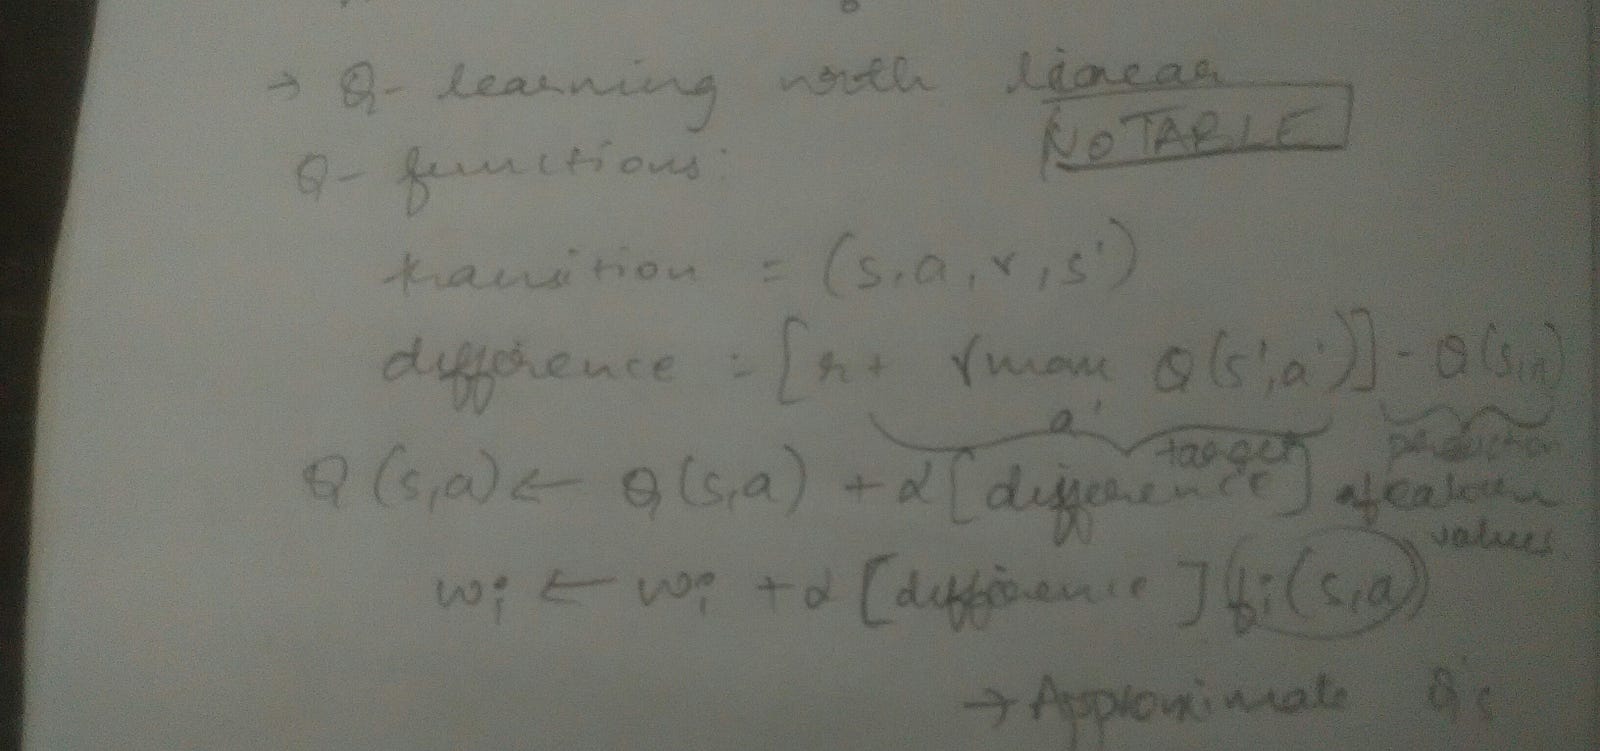 → Q- learning with linear
NO TABLE
Q- functions:
transition = (s,a,r,s')
difference = [r+ γmax Q(s',a')] - Q(s,a)
a'
target prediction
Q(s,a) ← Q(s,a) + α[difference] feature
values
wi ← wi + α [difference] fi(s,a)
→ Approximate Q's